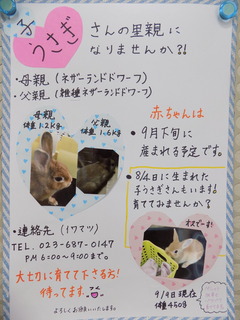 子うさぎさんの里親に
なりませんか?!
・母親(ネザーランドドワーフ)
・父親(雑種ネザーランドドワーフ)
母親
体重1.2Kg
父親
体重1.6Kg
赤ちゃんは
・9月下旬に
産まれる予定です。
8/4日に生まれた
子うさぎさんもいます!
育ててみませんか?
オスでーす!
・連絡先(イワマツ)
TEL. 029-687-0147
P.M 6:00〜9:00まで。
大切に育てて下さるお方
待ってます。
よろしくお願いいたします。
9/9日現在
体重450g